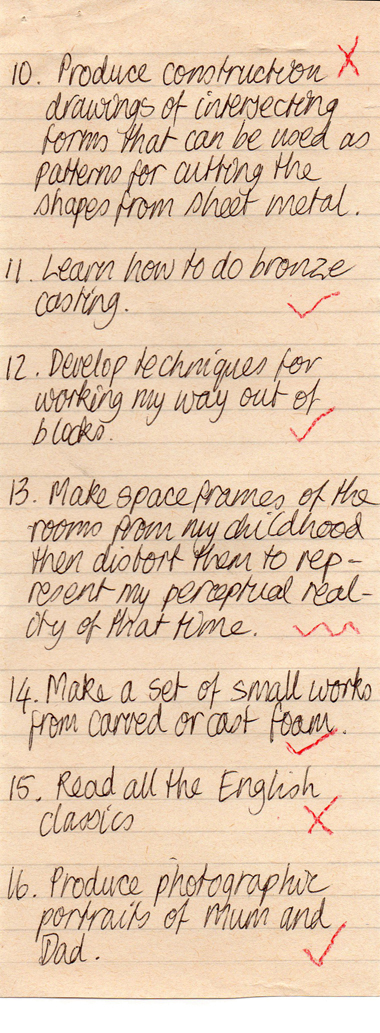 10. Produce construction
drawings of intersecting
forms that can be used as
patterns for cutting the
shapes from sheet metal.
11. Learn how to do bronze
casting.
12. Develop techniques for
working my way out of
blocks.
13. Make space frames of the
rooms from my childhood
then distort them to rep-
resent my perceptual real-
ity of that time.
14. Make a set of small works
from carved or cast foam.
15. Read all the English
classics
16. Produce photographic
portraits of Mum and
Dad.